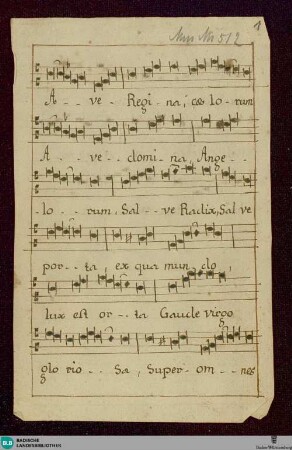 Mus Hs 512
1
A - - ve - Regi - na, cœ lo - rum
A - - ve - domi - na, Ange - -
- lo - - rum, Sal - - ve Radix, Sal ve
por - - ta, ex qua mun - do,
lux est or - - ta Gaude Virgo
glo rio - - Sa, Super - om - - nes
BLB BADISCHE
LANDESBIBLIOTHEK
Baden-Württemberg